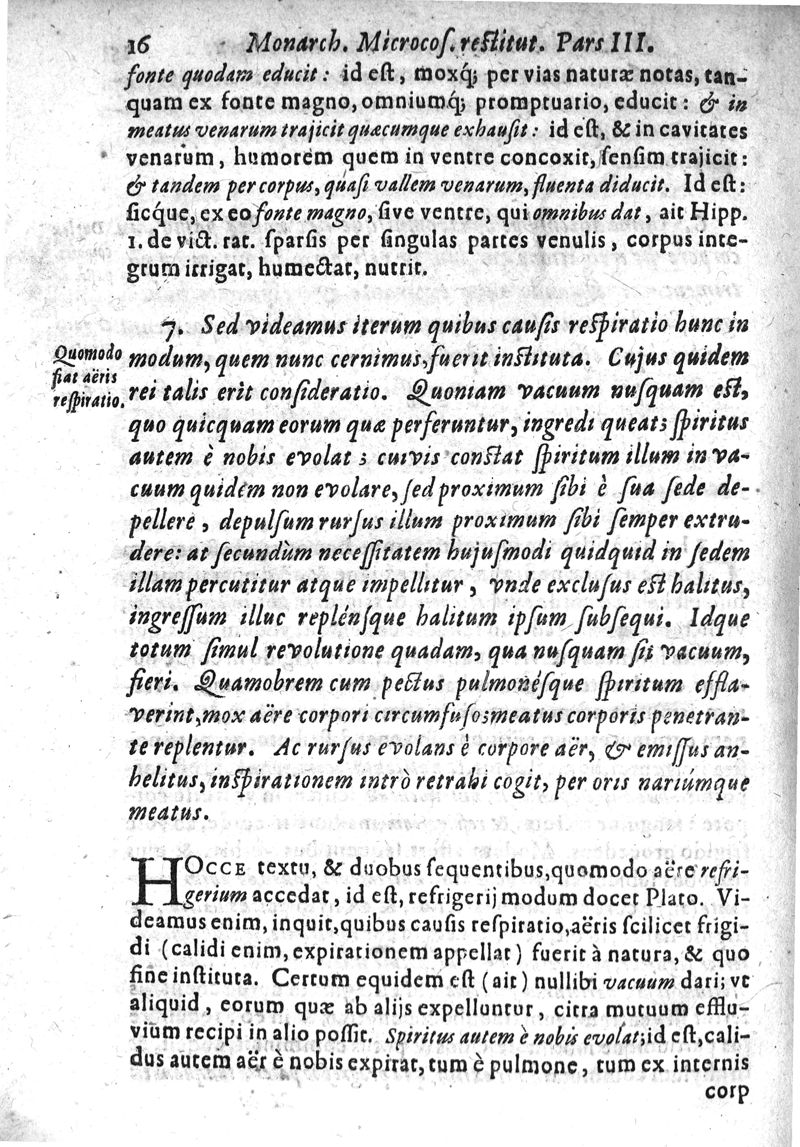 16 Monarch. Microcoſ. reſtitut. Pars III.
fonte quodam educit: id eſt, moxq́; per vias naturæ notas, tan-
quam ex fonte magno, omniumq́; promptuario, educit: & in
meatus venarum trajicit quæcumque exhauſit: id eſt, & in cavitates
venarum, humorem quem in ventre concoxit, ſenſim trajicit:
& tandem per corpus, quaſi vallem venarum, fluenta diducit. Id eſt:
ſicque, ex eo fonte magno, ſive ventre, qui omnibus dat, ait Hipp.
1. de vict. rat. ſparſis per ſingulas partes venulis, corpus inte-
grum irrigat, humectat, nutrit.
7. Sed videamus iterum quibus cauſis reſpiratio hunc in
Quomodo
fiat aëris
reſpiratio.
modum, quem nunc cernimus, fuerit inſtituta. Cujus quidem
rei talis erit conſideratio. Quoniam vacuum nuſquam eſt,
quo quicquam eorum quæ perferuntur, ingredi queat; ſpiritus
autem è nobis evolat; cuivis conſtat ſpiritum illum in va-
cuum quidem non evolare, ſed proximum ſibi è ſua ſede de-
pellere, depulſum rurſus illum proximum ſibi ſemper extru-
dere: at ſecundùm neceſſitatem hujuſmodi quidquid in ſedem
illam percutitur atque impellitur, vnde excluſus eſt halitus,
ingreſſum illuc replénſque halitum ipſum ſubſequi. Idque
totum ſimul revolutione quadam, qua nuſquam ſit vacuum,
fieri. Quamobrem cum pectus pulmonéſque ſpiritum effla-
verint, mox aëre corpori circumfuſo; meatus corporis penetran-
te replentur. Ac rurſus evolans è corpore aër, & emiſſus an-
helitus, inſpirationem intrò retrahi cogit, per oris nariúmque
meatus.
HOCCE textu, & duobus ſequentibus, quomodo aëre refri-
gerium accedat, id eſt, refrigerij modum docet Plato. Vi-
deamus enim, inquit, quibus cauſis reſpiratio, aëris ſcilicet frigi-
di (calidi enim, expirationem appellat) fuerit à natura, & quo
fine inſtituta. Certum equidem eſt (ait) nullibi vacuum dari; vt
aliquid, eorum quæ ab alijs expelluntur, citra mutuum efflu-
vium recipi in alio poſſit. Spiritus autem è nobis evolat; id eſt, cali-
dus autem aër è nobis expirat, tum è pulmone, tum ex internis
corp